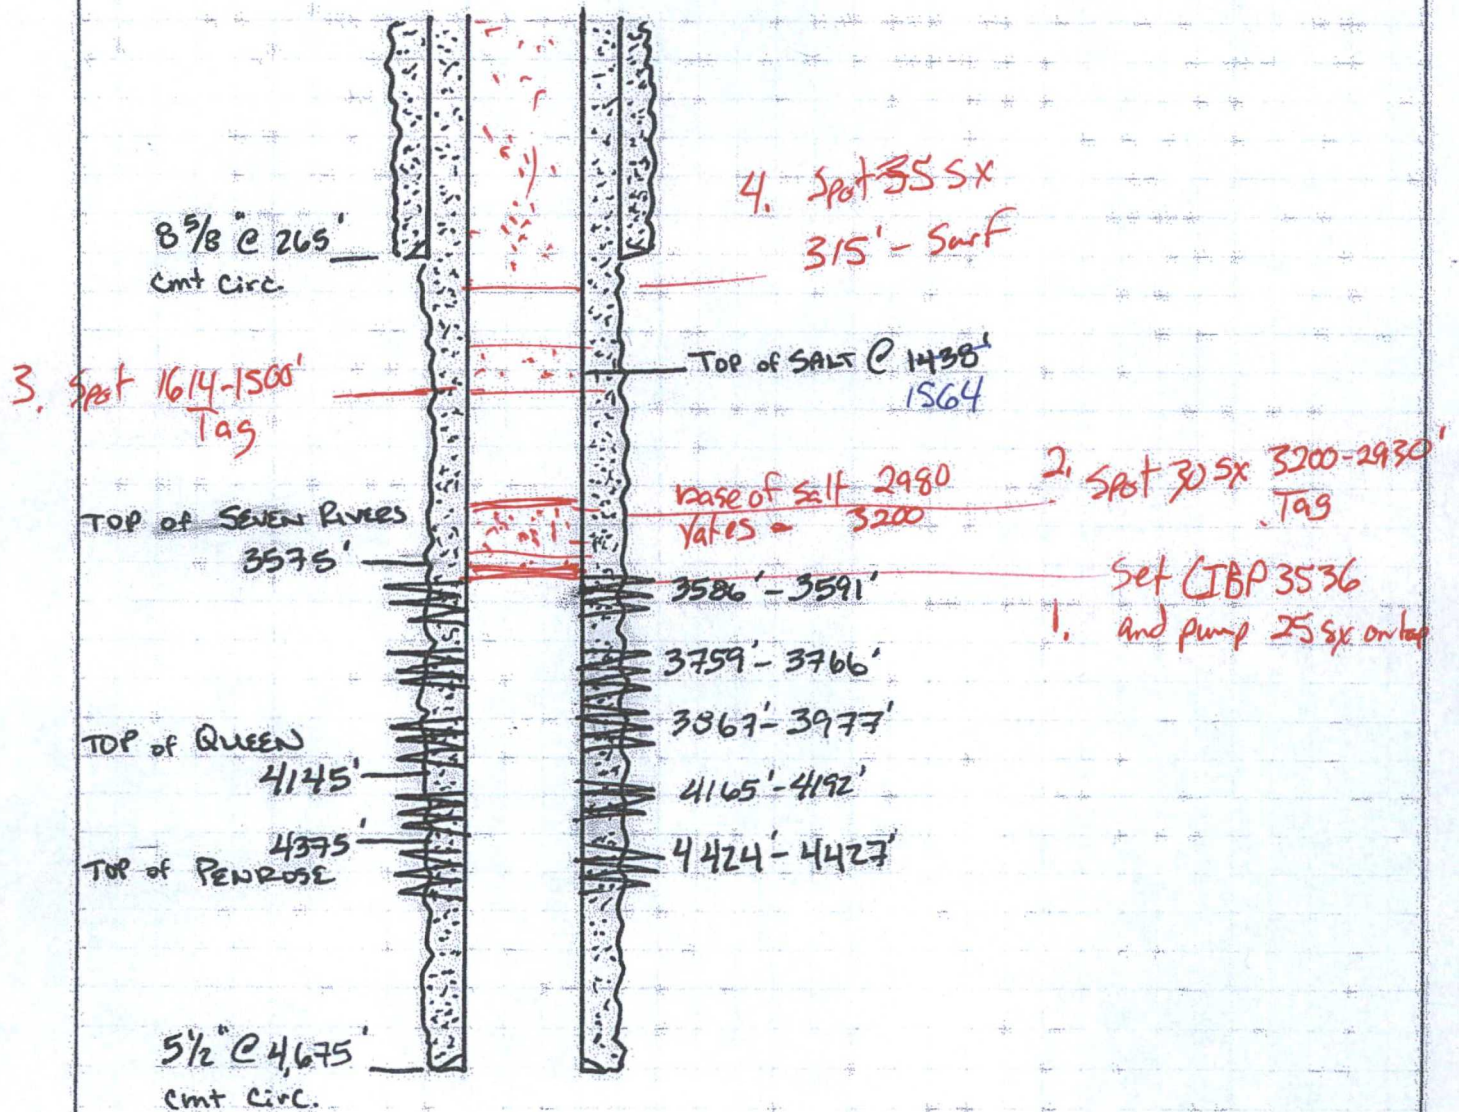 4. Spot 35 sx
315' - Surf
8 5/8" @ 265'
Cmt Circ.
TOP of SALT @ 1438'
1564
3. Spot 1614-1500'
Tag
2. Spot 30 sx 3200-2930'
Tag
Base of Salt 2980
Yates - 3200
TOP of SEVEN RIVERS
3575'
Set CIBP 3536
1. and pump 25 sx on top
3586' - 3591'
3759' - 3766'
3867' - 3977'
TOP of QUEEN
4145'
4165' - 4192'
4375'
TOP of PENROSE
4424' - 4427'
5 1/2" @ 4,675'
Cmt Circ.